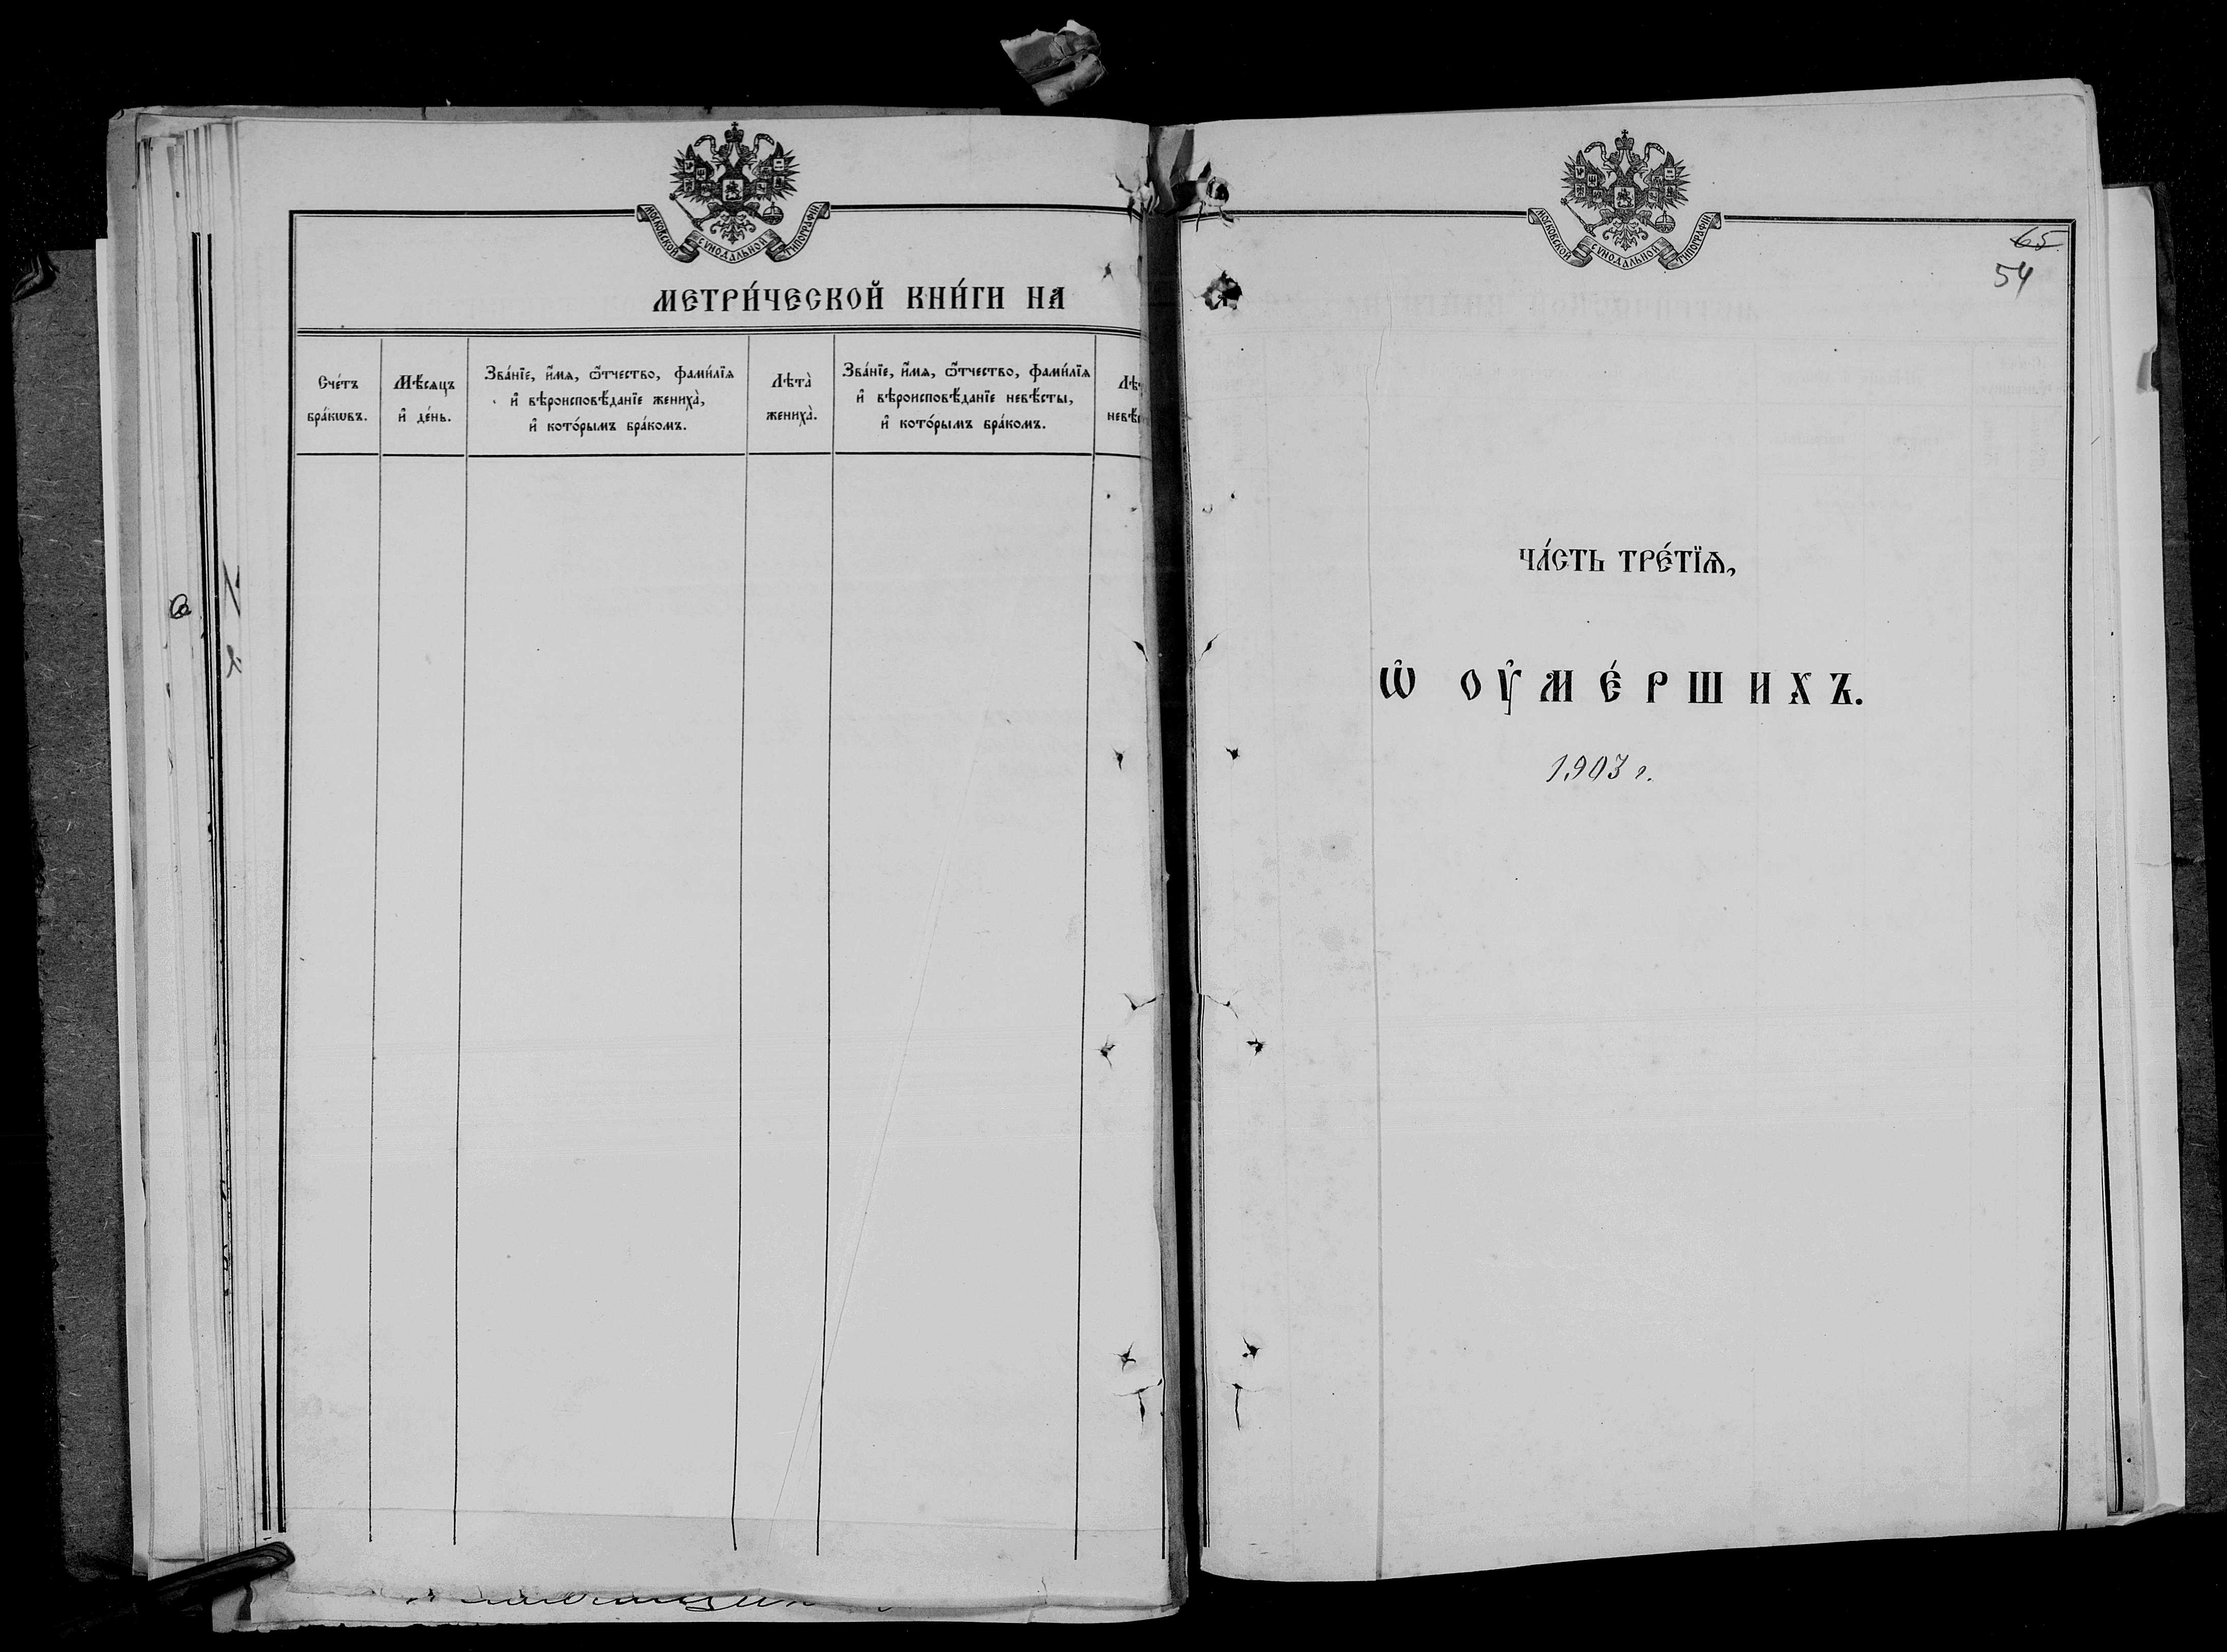 МОСКОВСКОЙ СѴНОДАЛЬНОЙ ТИПОГРАФІИ.
МЕТРИ́ЧЕСКОЙ КНИ́ГИ НА
Сче́тъ бра́кѡвъ.
Мѣ́сяцъ и҆ де́нь.
Зва́нїе, и҆́мѧ, ѻ҆́тчество, фами́лїѧ
и҆ вѣроисповѣ́данїе жениха̀,
и҆ кото́рымъ бра́комъ.
Лѣта̀ жениха̀.
Зва́нїе, и҆́мѧ, ѻ҆́тчество, фами́лїѧ
и҆ вѣроисповѣ́данїе невѣ́сты,
и҆ кото́рымъ бра́комъ.
МОСКОВСКОЙ СѴНОДАЛЬНОЙ ТИПОГРАФІИ.
65
54
ЧА́СТЬ ТРЕ́ТЇѦ,
Ѽ ОУ҆МЕ́РШИХЪ.
1903 г.